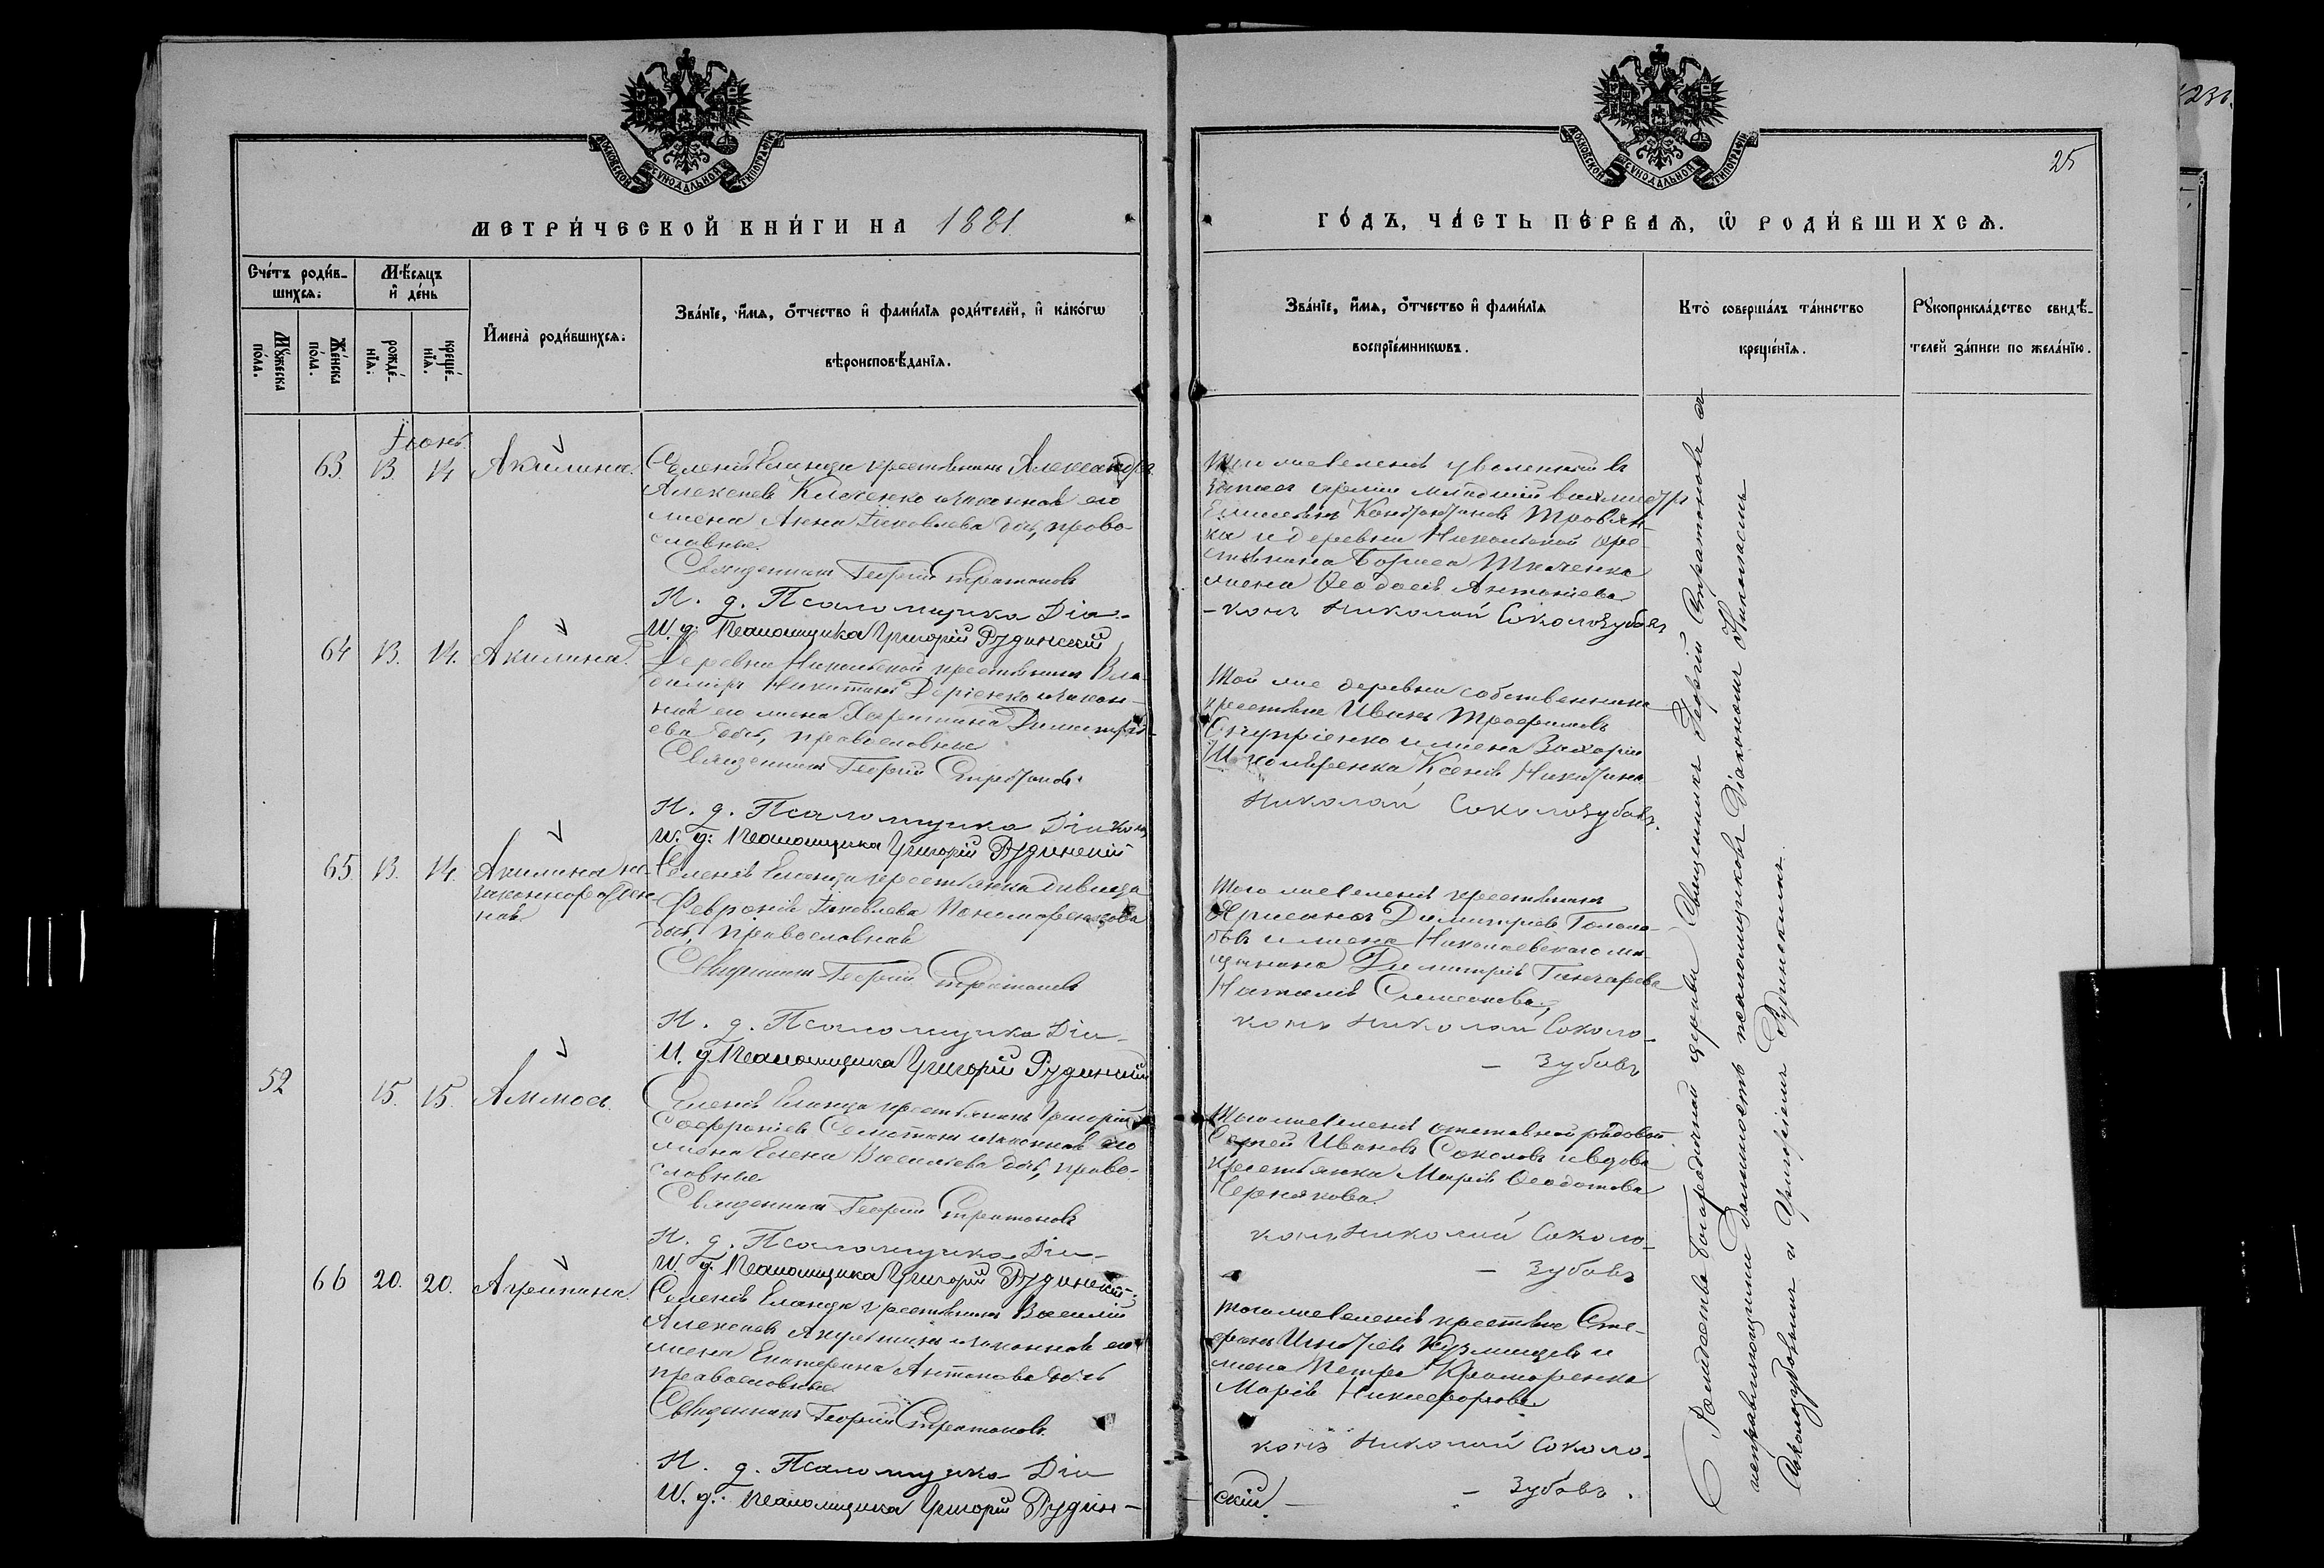 МОСКОВСКОЙ СѴНОДАЛЬНОЙ ТИПОГРАФІИ
МЕТРИ́ЧЕСКОЙ КНИ́ГИ НА 1881
Сче́тъ роди́в-
шихсѧ:
Мꙋ́жеска
по́ла.
Же́нска
по́ла.
Мѣ́сѧцъ
и҆ де́нь
рожде́-
нїѧ:
креще́-
нїѧ.
И҆мена̀ роди́вшихсѧ:
Зва́нїе, и҆́мѧ, ѻ҆́тчество и҆ фами́лїѧ роди́телей, и҆ како́гѡ
вѣроисповѣ́данїѧ.
Іюнь
63. 13. 14 Акилина.
Селенія Еланца крестьянинъ Александръ
Алексеевъ Клименко и законная его
жена Анна Яковлева оба, право-
славные.
Священникъ Георгій Стратоновъ
И. д. Псаломщика Діа-
И. д: Псаломщика Григорій Рудинскій
64 13. 14. Акилина.
Деревни Никольской крестьянинъ Вла-
димиръ Никитинъ Дерієнко и закон-
ная его жена Харитина Димитрі-
ева оба, православные
Священникъ Георгій Стратоновъ.
И. д. Псаломщика Діаконъ
И. д: Псаломщика Григорій Рудинскій
65 13. 14. Акилина не-
законнорожден
ная.
Селенія Еланца крестьянка дивица
Февронія Яковлева Пономаренкова
православная
Священникъ Георгій Стратоновъ
И. д. Псаломщика Діа-
И. д Псаломщика Григорій Рудинскій
52 15. 15. Аммосъ.
Селенія Еланца крестьянинъ Григорій
Софроніевъ и законная его
жена Елена Васильева оба, право-
славные
Священникъ Георгій Стратоновъ
И. д. Псаломщика Діа-
И. д. Псаломщика Григорій Рудинскій
66 20. 20. Агрипина.
Селенія Еланца крестьянинъ Василій
Алексеевъ и законная его
жена Екатерина Антонова оба
православные
Священникъ Георгій Стратоновъ.
И. д. Псаломщика Діа
И. д.: Псаломщика Григорій Рудин-
МОСКОВСКОЙ СѴНОДАЛЬНОЙ ТИПОГРАФІИ
25
ГО́ДЪ, ЧА́СТЬ ПЕ́РВАѦ, Ѡ҆ РОДИ́ВШИХСѦ.
Зва́нїе, и҆́мѧ, ѻ҆́тчество и҆ фами́лїѧ
воспрїе́мникѡвъ.
Кто̀ соверша́лъ та́инство
креще́нїѧ.
Рꙋкоприкла́дство свидѣ́-
телей за́писи по жела́нїю.
Того же селенія уволенный въ
запасъ арміи младшій вахмистръ
и деревни Никольской кре-
стьянина Бориса Ткаченка
жена Ѳеодосія Антоніева
-конъ Николай Соколозубовъ
Той же деревни собственника
крестьяне Иванъ Трофимовъ
Скупріенко и жена Захарія
Ксенія Никитина
Николай Соколозубовъ.
Того же селенія крестьянинъ
Димитріевъ
и жена Николаевскаго мѣ-
щанина Димитрія Гончарова
Наталія Симеонова.
конъ Николай Соколо-
- Зубовъ
Того же селенія отставной рядовой
Сергей Ивановъ Соколовъ и вдова
крестьянка Марія Ѳеодотова
Чернякова.
конъ Николай Соколо-
- Зубовъ
Того же селенія крестьяне Сте-
фанъ Игнатіевъ Кузмицевъ и
жена Петра Крамаренка
Марія Никифорова
конъ Николай Соколо-
скій. - Зубовъ.
Рождество Богородичной церкви Священникъ Георгій Стратоновъ съ
исправляющими должность псаломщиковъ Діакономъ Николаемъ
Соколозубовымъ и Григоріемъ Рудинскимъ.